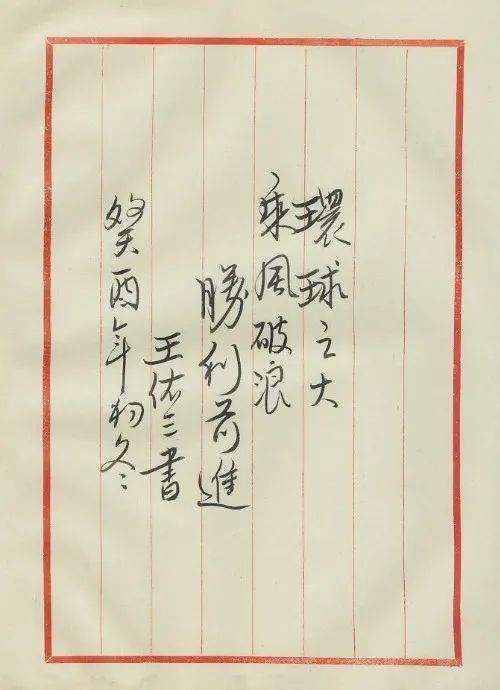 環球之大
乘風破浪
勝利前進
王佑三書
癸酉年初冬